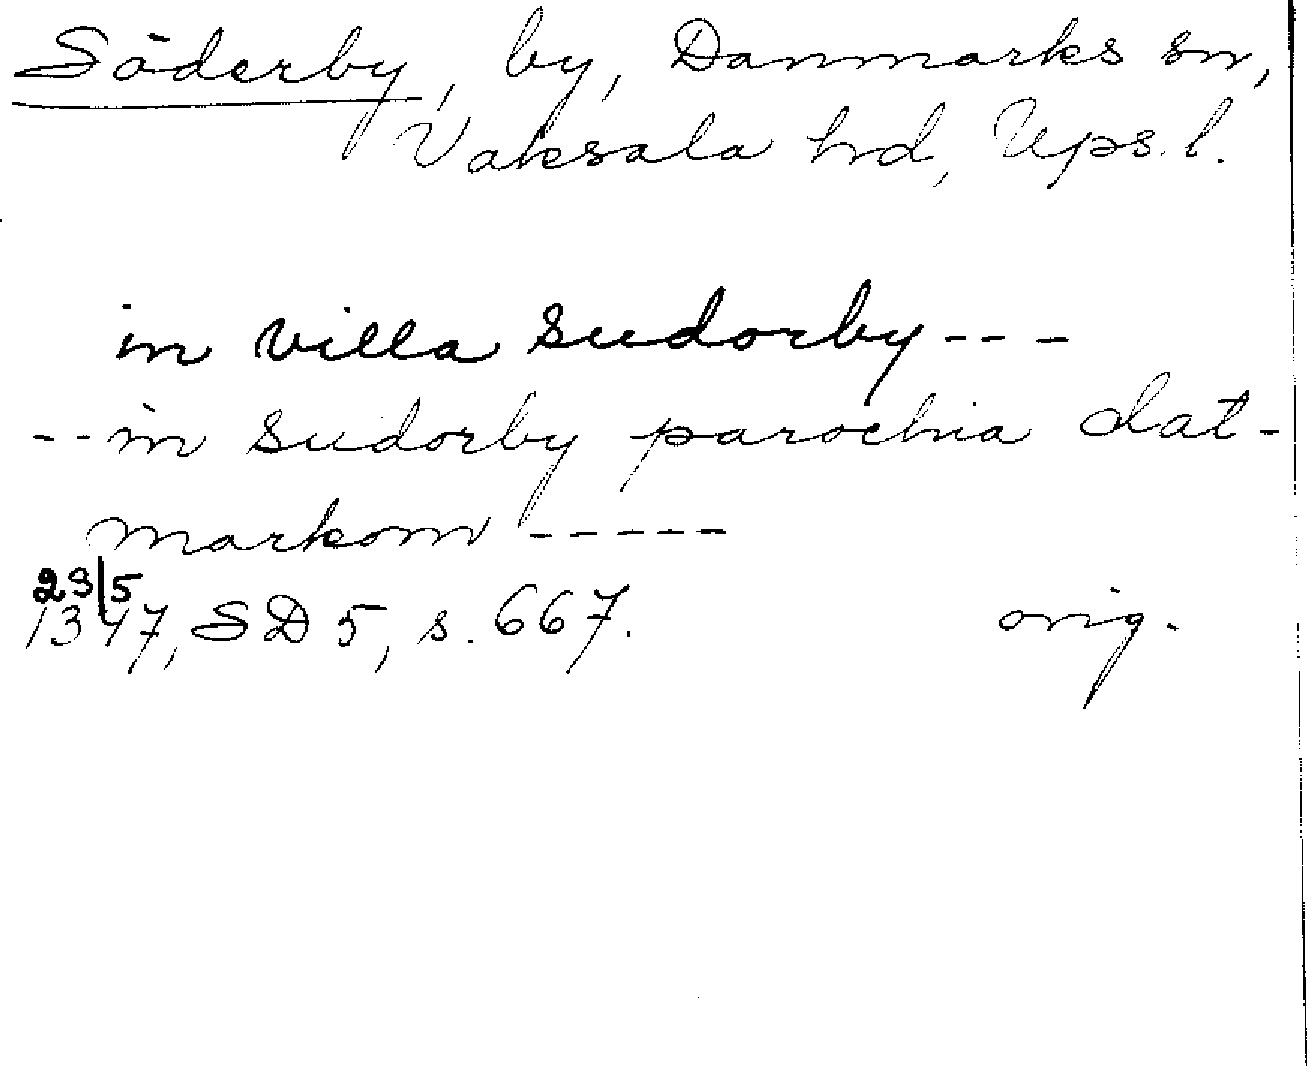 Söderby, by, Danmarks sn,
Vaksala hd, Ups. l.
in villa sudorby ---
-- in sudorby parochia dat-
markom -----
23/5
1347, SD 5, s. 667. orig.